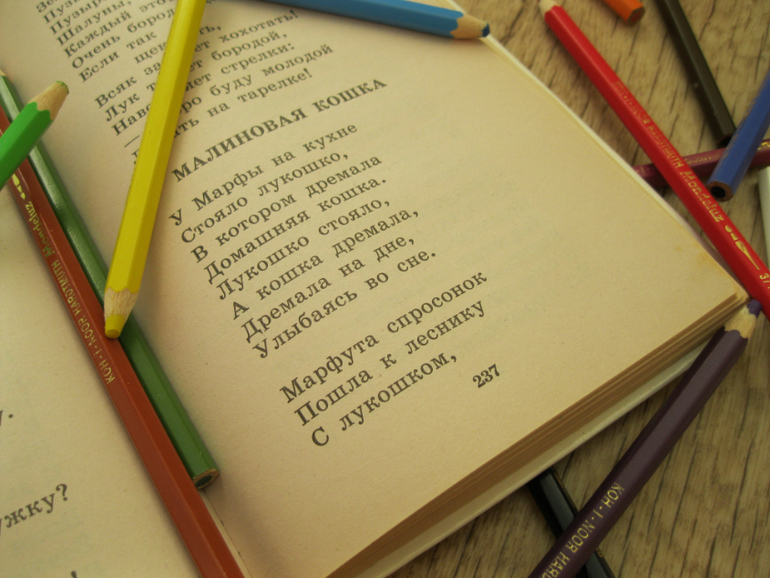 Пузыр
Шалуны,
Каждый это
Очень бород
Если так хохотать!
щек ть,
Всяк за ет бородой,
Лук т ет стрелки:
Наво ро буду молодой
ть на тарелке!
МАЛИНОВАЯ КОШКА
У Марфы на кухне
Стояло лукошко,
В котором дремала
Домашняя кошка.
Лукошко стояло,
А кошка дремала,
Дремала на дне,
Улыбаясь во сне.
Марфута спросонок
Пошла к леснику
С лукошком,
237
ужку?
KOH-I-NOOR HARDTMUTH Mondeluz
KOH-I-NOOR
HARDTMUTH Mondeluz
KOH-I-NOOR HARD